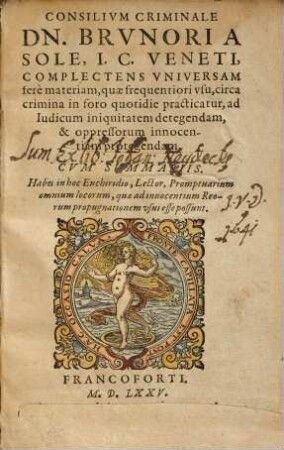 CONSILIVM CRIMINALE
DN. BRVNORI A
SOLE, I. C. VENETI,
COMPLECTENS VNIVERSAM
ferè materiam, quæ frequentiori vſu, circa
crimina in foro quotidie practicatur, ad
Iudicum iniquitatem detegendam,
& oppreſſorum innocen-
tiam protegendam.
Sum Ex lib.
CVM SVMMARIIS.
Habes in hoc Enchiridio, Lector, Promptuarium
omnium locorum, quæ ad innocentium Reo-
rum propugnationem vſui eſſe poſſunt.
I.V.D.
1641
FRANCOFORTI,
M. D. LXXV.